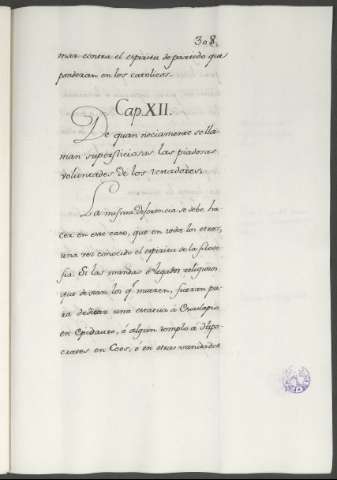 308.
mar contra el espiritu de partido que
ponderan en los catolicos.
Cap. XII.
De quan neciamente se lla
man supersticiosas las piadosas
voluntades de los testadores.
La misma diferencia se debe ha
cer en este caso, que en todos los otros,
una vez conocido el espiritu de la filoso
fia. Si las mandas ó legados religiosos
que dexan los q.e mueren, fueran pa
ra dedicar una estatua á Esculapio
en Epidauro, ó algun templo á Hipo
crates en Coos, ó en otras vanidades